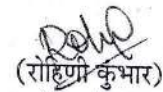 (रोहिणी कुंभार)